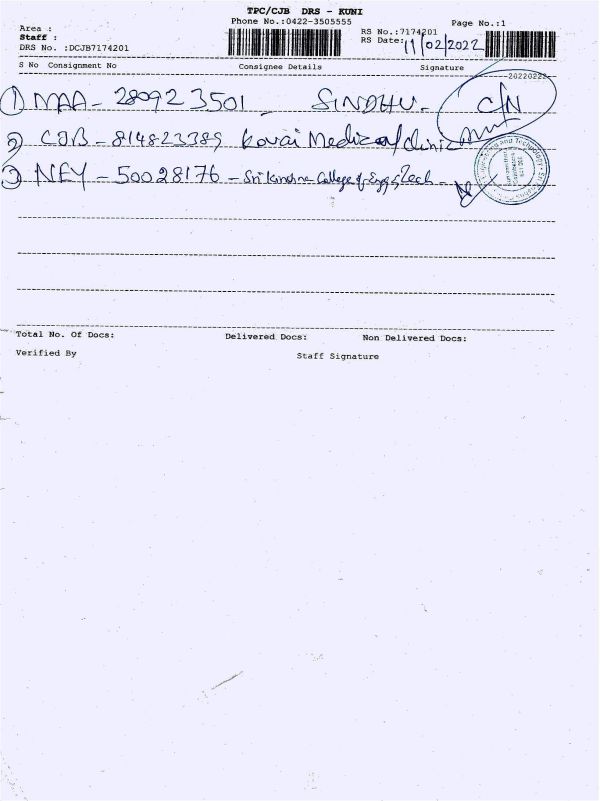 TPC/CJB DRS - KUNI
Phone No.:0422-3505555
Page No.:1
Area :
Staff :
DRS No. :DCJB7174201
RS No.:7174201
RS Date: 11/02/2022
S No Consignment No Consignee Details Signature
20220222
① MAA - 280923501 - SINDHU - C/N
2) CJB - 814823389 Kovai Medical clinic
③ NEY - 50028176 - Sri Krishna College of Engg & Tech -
Total No. Of Docs: Delivered Docs: Non Delivered Docs:
Verified By Staff Signature